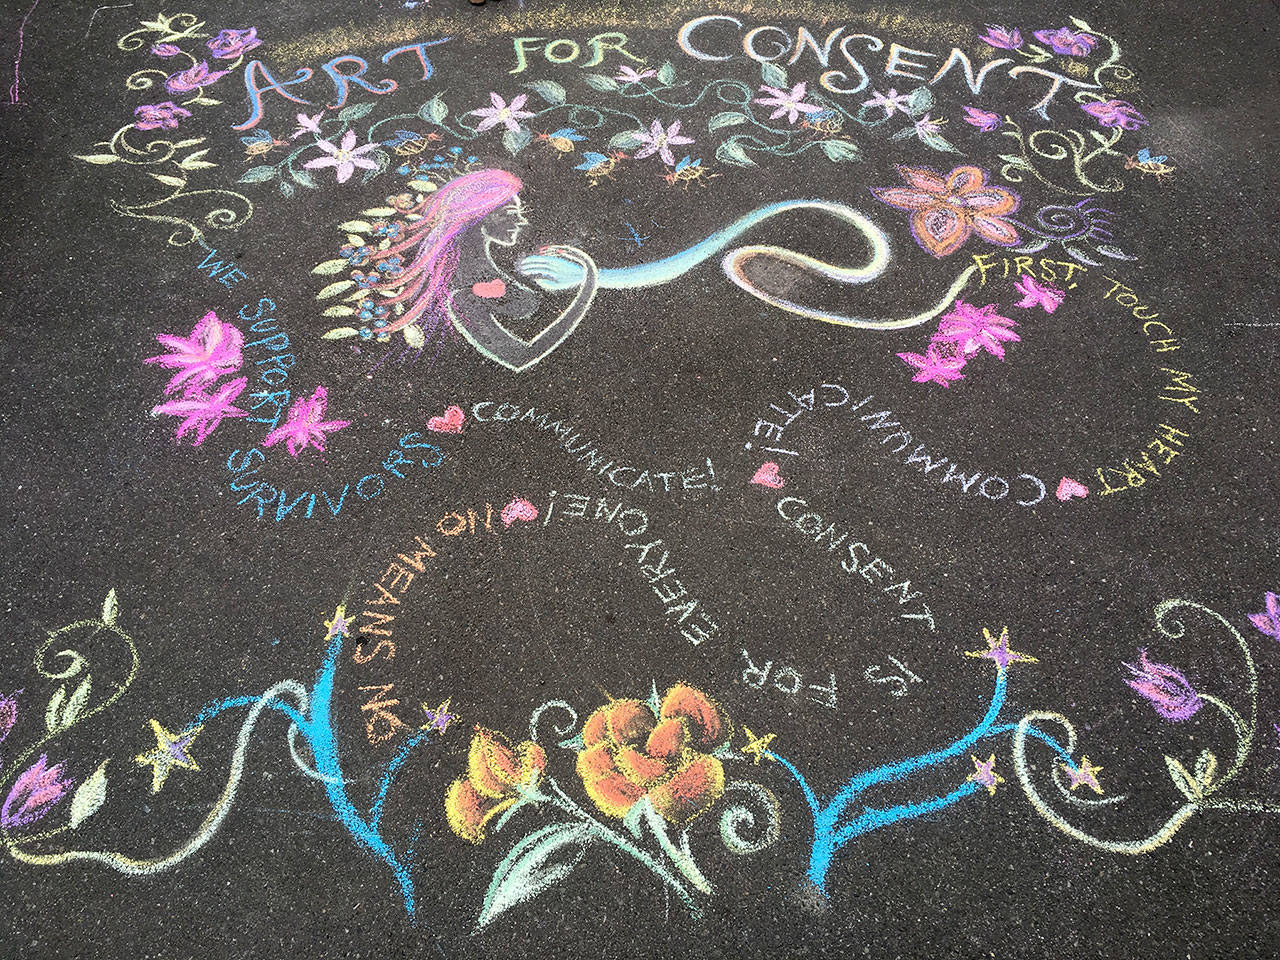 ART FOR CONSENT
WE SUPPORT SURVIVORS
COMMUNICATE!
FIRST, TOUCH MY HEART
COMMUNICATE!
CONSENT IS FOR EVERYONE!
NO MEANS NO